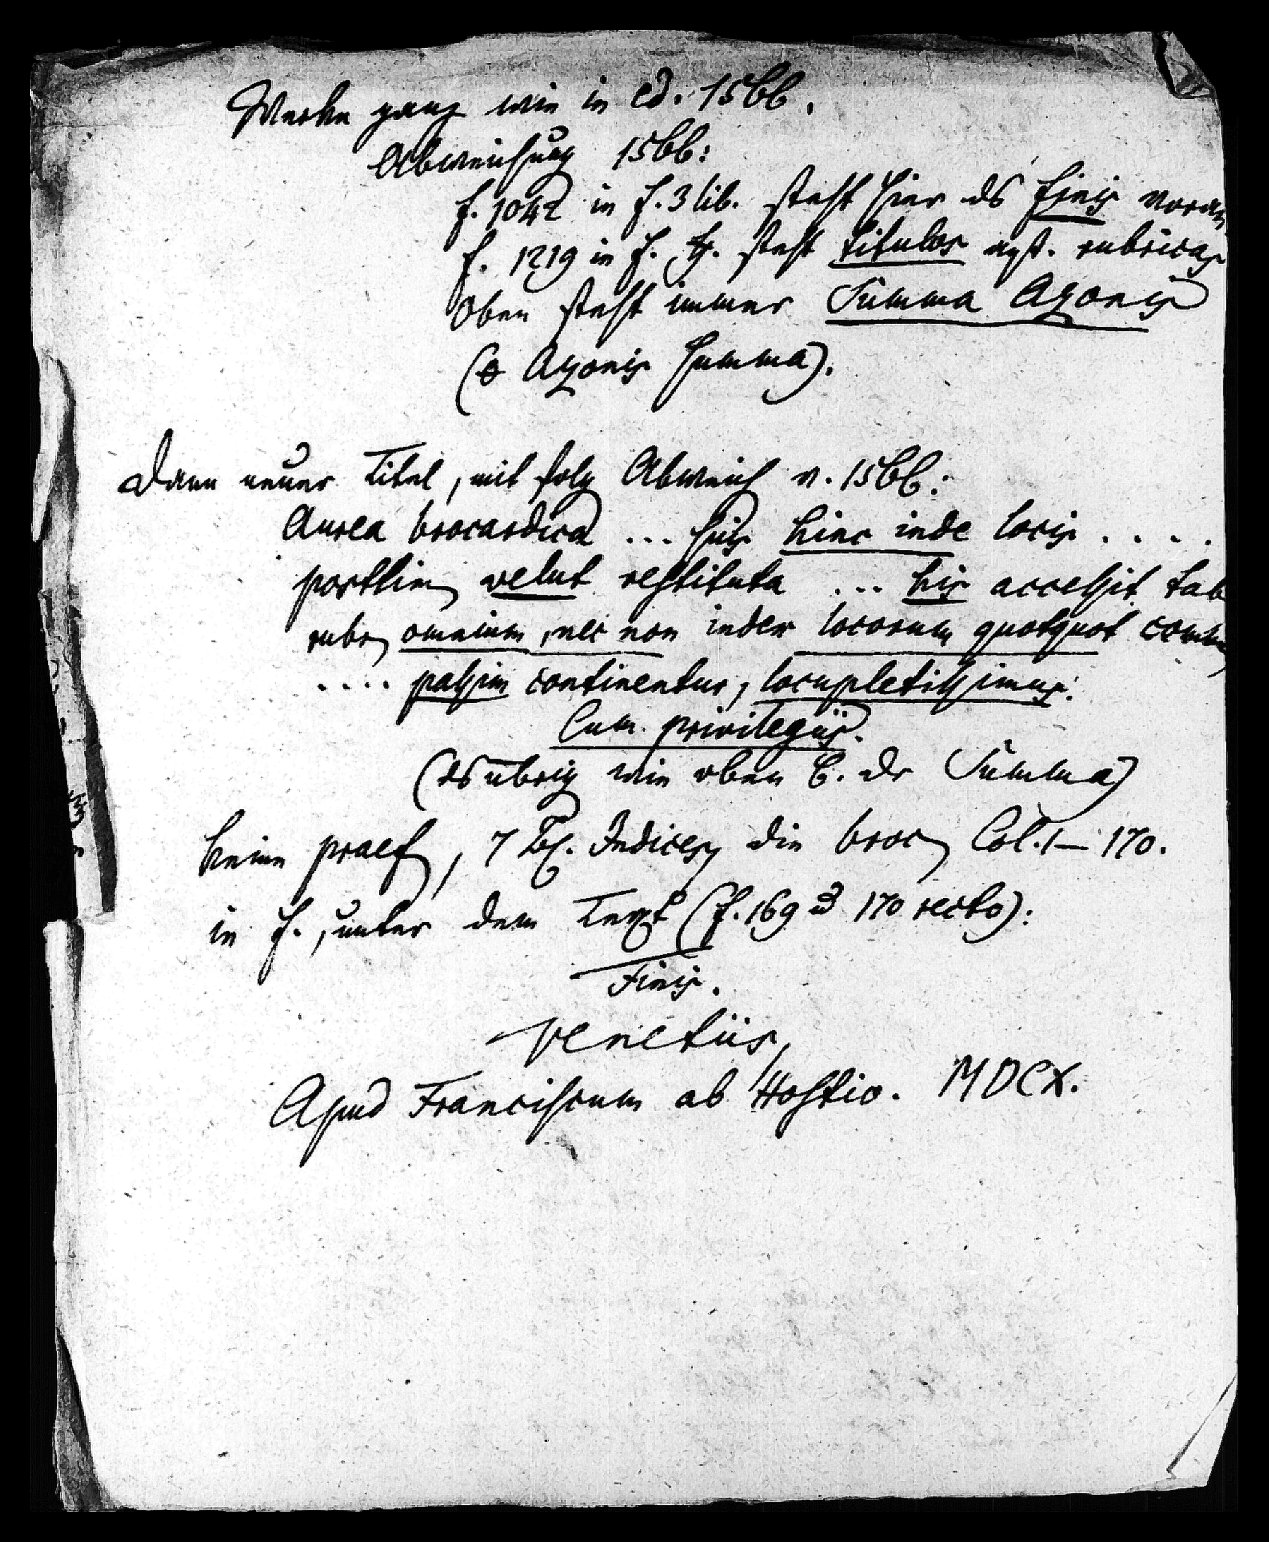 Werke ganz wie in ed. 1566.
Abweichung 1566:
f. 1042 in f. 3 lib. steht hier ds finis voran
f. 1219 in f. steht titulos agst. rubricas
Oben steht immer Summa Azonis
(Azonis summa).
Dann neuer Titel, mit folg Abweich v. 1566:
Aurea brocardica ... suis hinc inde locis ....
postlim velut restituta ... his accessit tab
rubr omnium, nec non index locorum quotquot
.... passim continentur, locupletissimus.
Cum privilegiis.
(ds übrig wie oben b. dr Summa)
keine praef, 7 Bl. Indices, die broc Col. 1 — 170.
in f., unter dem Text (f. 169 u 170 recto):
Finis.
Venetiis,
Apud Franciscum ab Hostio. MDCX.